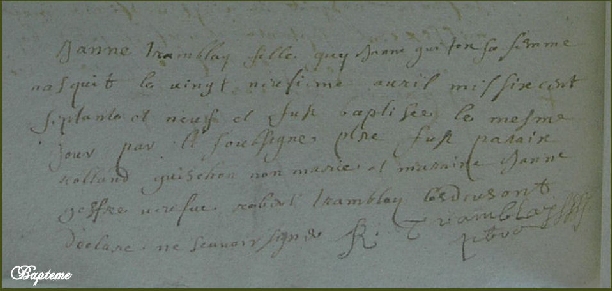 Janne tramblay fille guy Janne guiton sa femme
nasquit le vingt neufime auril mil sixcent
septante et neuf et fust baptisee le mesme
jour par le soubsigne pbre fust parain
Rolland guischon non marie et maraine Janne
geffre vefue robert tramblay lesdeusont
declare ne scauoir signe R. Tramblay
pbre
Bapteme